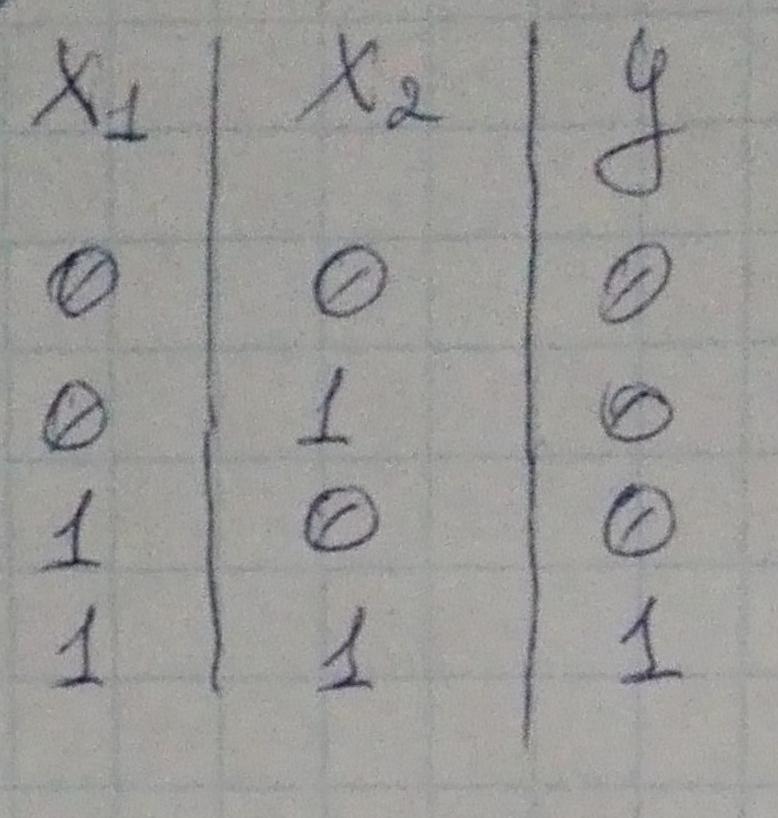 X1 X2 y
0 0 0
0 1 0
1 0 0
1 1 1